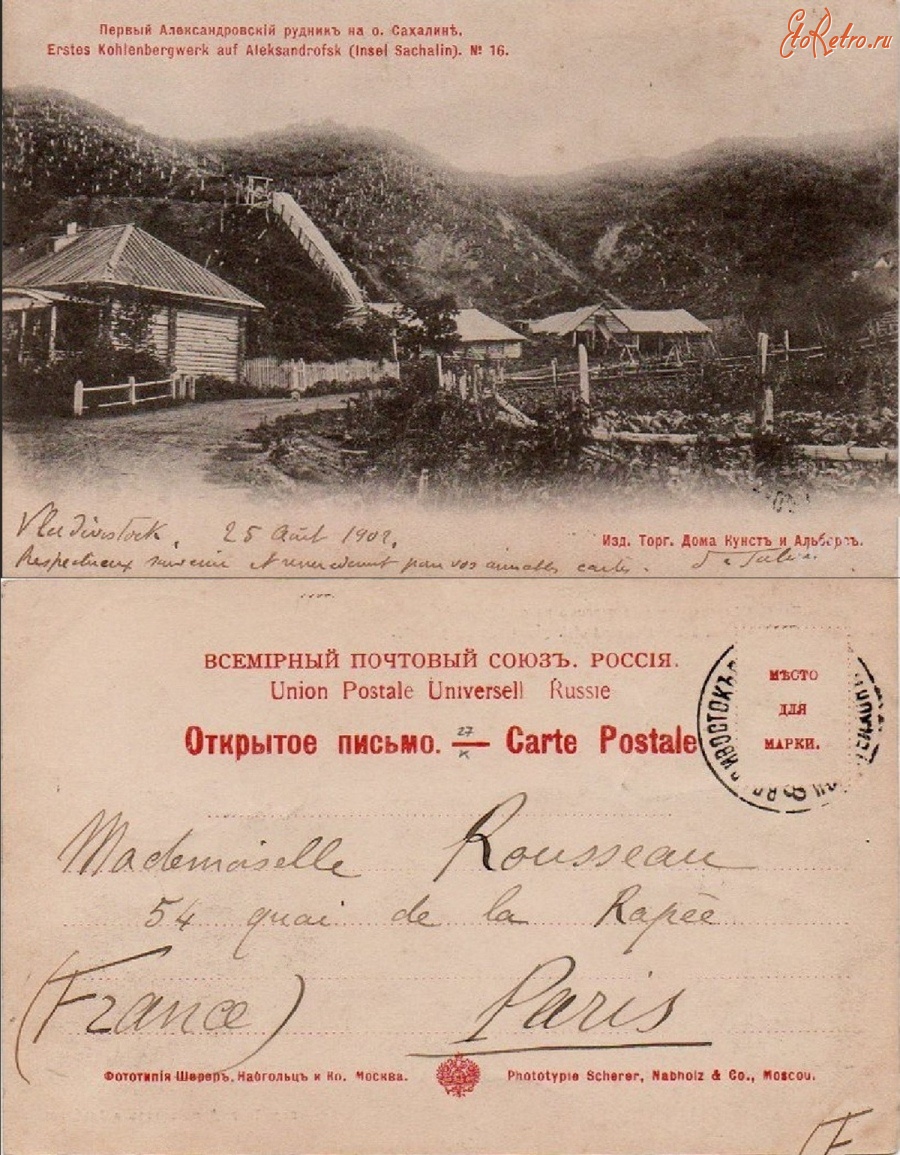 Первый Александровскій рудникъ на о. Сахалинѣ.
EtoRetro.ru
Erstes Kohlenbergwerk auf Aleksandrofsk (Insel Sachalin). № 16.
Vladivostock, 25 Août 1902.
Изд. Торг. Дома Кунстъ и Альберсъ.
Respectueux souvenir et remerciement pour vos aimables cartes.
ВСЕМІРНЫЙ ПОЧТОВЫЙ СОЮЗЪ. РОССІЯ.
Union Postale Universell Russie
Открытое письмо. — Carte Postale
27
МѢСТО
ДЛЯ
МАРКИ.
ИВОСТОКЪ
Mademoiselle Rousseau
54 quai de la Rapée
(France) Paris
Фототипія Шереръ, Набгольцъ и Ко. Москва.
Phototypie Scherer, Nabholz & Co., Moscou.